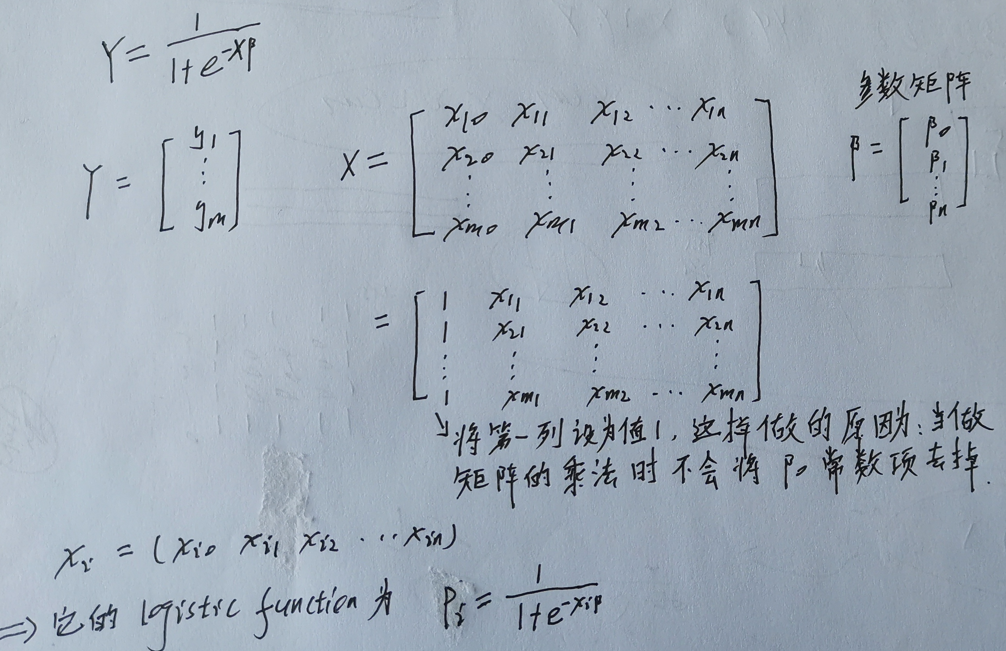 Y = 1/(1+e^{-Xβ})
参数矩阵
Y = [y₁ ⋮ yₘ] X = [x₁₀ x₁₁ x₁₂ ⋯ x₁ₙ; x₂₀ x₂₁ x₂₂ ⋯ x₂ₙ; ⋮ ⋮ ⋮ ⋮; xₘ₀ xₘ₁ xₘ₂ ⋯ xₘₙ] β = [β₀ β₁ ⋮ βₙ]
= [1 x₁₁ x₁₂ ⋯ x₁ₙ; 1 x₂₁ x₂₂ ⋯ x₂ₙ; ⋮ ⋮ ⋮ ⋮; 1 xₘ₁ xₘ₂ ⋯ xₘₙ]
↘将第一列设为值1,这样做的原因为:当做
矩阵的乘法时不会将β₀常数项去掉.
xᵢ = (xᵢ₀ xᵢ₁ xᵢ₂ ⋯ xᵢₙ)
⇒ 它的 logistic function 为 Pᵢ = 1/(1+e^{-xᵢβ})